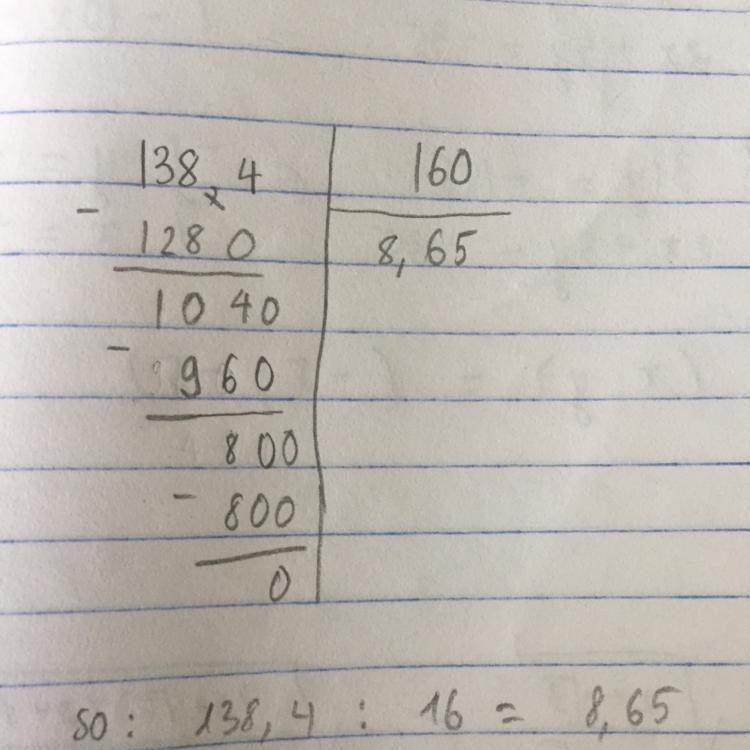 138,4 160
- 1280 8,65
1040
- 960
800
- 800
0
so: 138,4 : 16 = 8,65